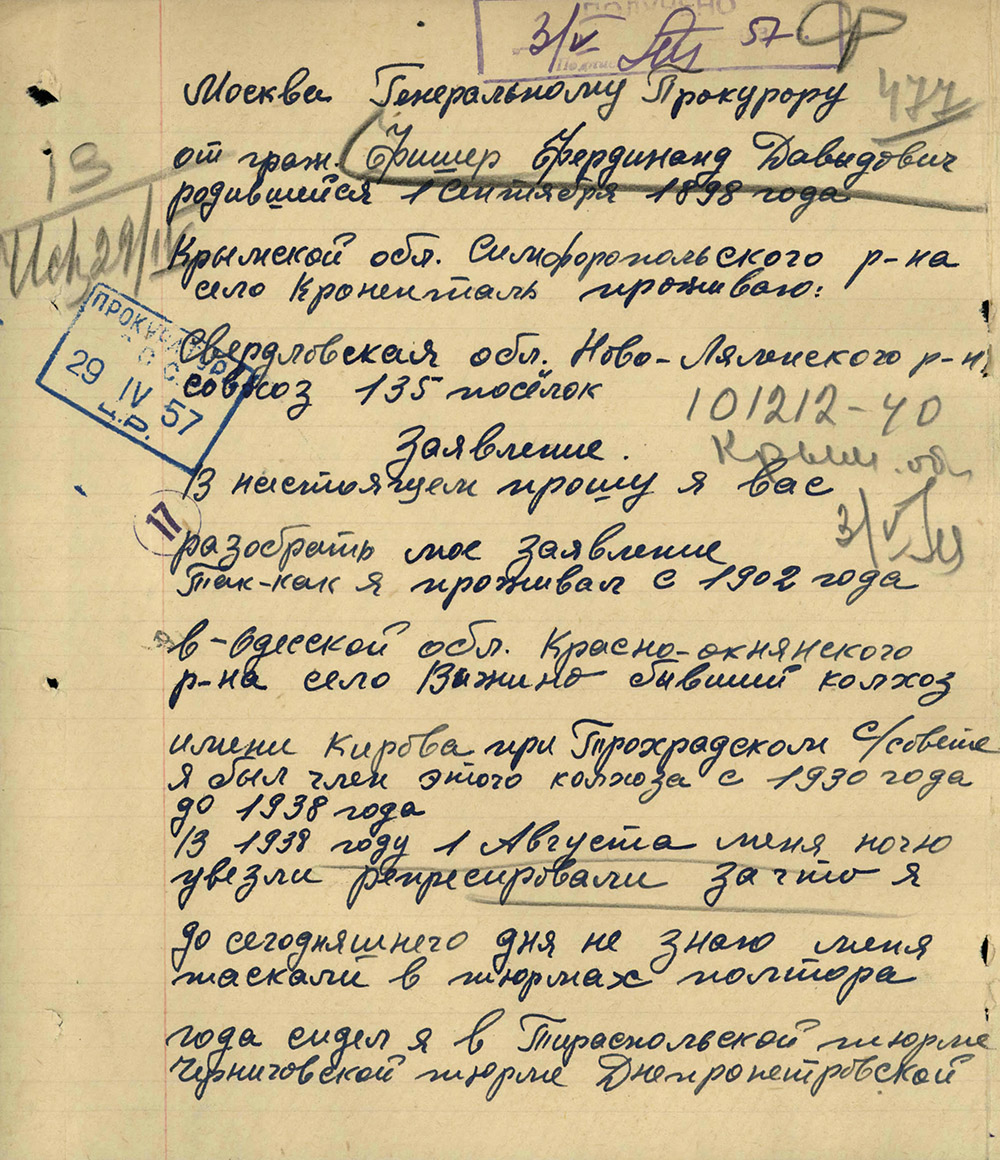 ПОЛУЧЕНО
3/V 57 г.
Подпис
Москва Генеральному Прокурору
477
от граж. Фишер Фердинанд Давыдович
13
родившийся 1 Сентября 1898 года
29/IV
Крымской обл. Симфоропольского р-на
село Кроненталь проживаю:
ПРОКУРАТУРА
С.С.
29 IV 57
Ц.Р.
Свердловская обл. Ново-Лялинского р-н.
совхоз 135 посёлок
101212-40
Крым. обл
Заявление.
В настоящем прошу я вас
17
3/V
разобрать мое заявление
Так-как я проживал с 1902 года
в-Одесской обл. Красно-окнянского
р-на село Вижино бывший колхоз
имени Кирова при Трохрадском С/совете
я был член этого колхоза с 1930 года
до 1938 года
В 1938 году 1 Августа меня ночю
увезли репресировали за что я
до сегодняшнего дня не знаю меня
таскали в тюрмах полтора
года сидел я в Тираспольской тюрме
Черниговской тюрме Днепропетровской